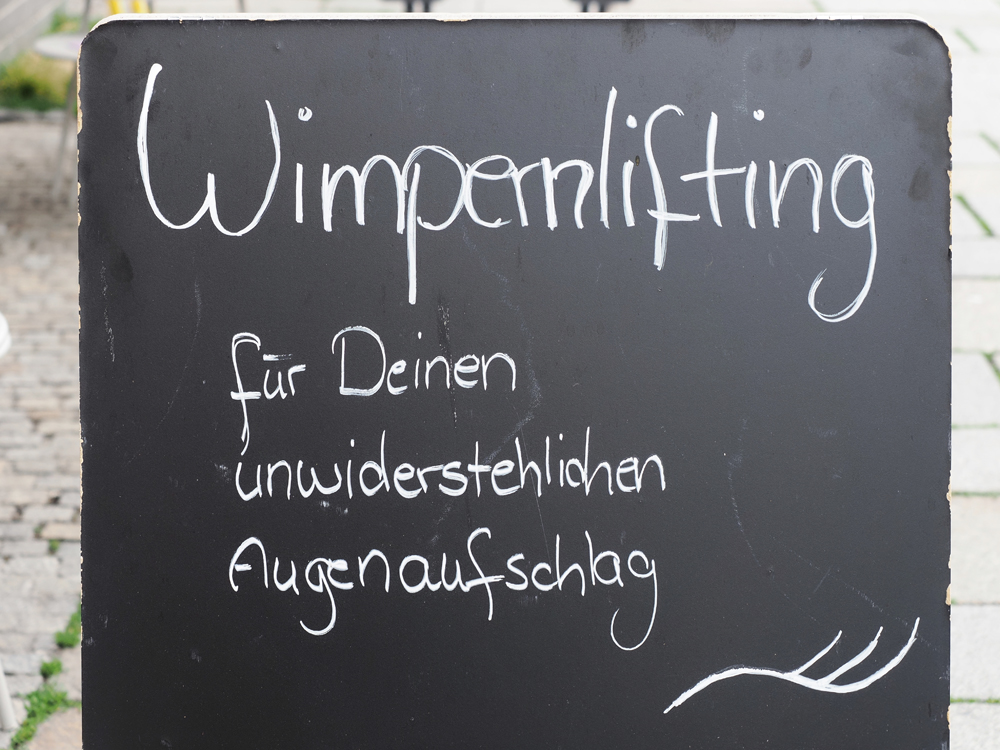 Wimpernlifting
für Deinen
unwiderstehlichen
Augenaufschlag